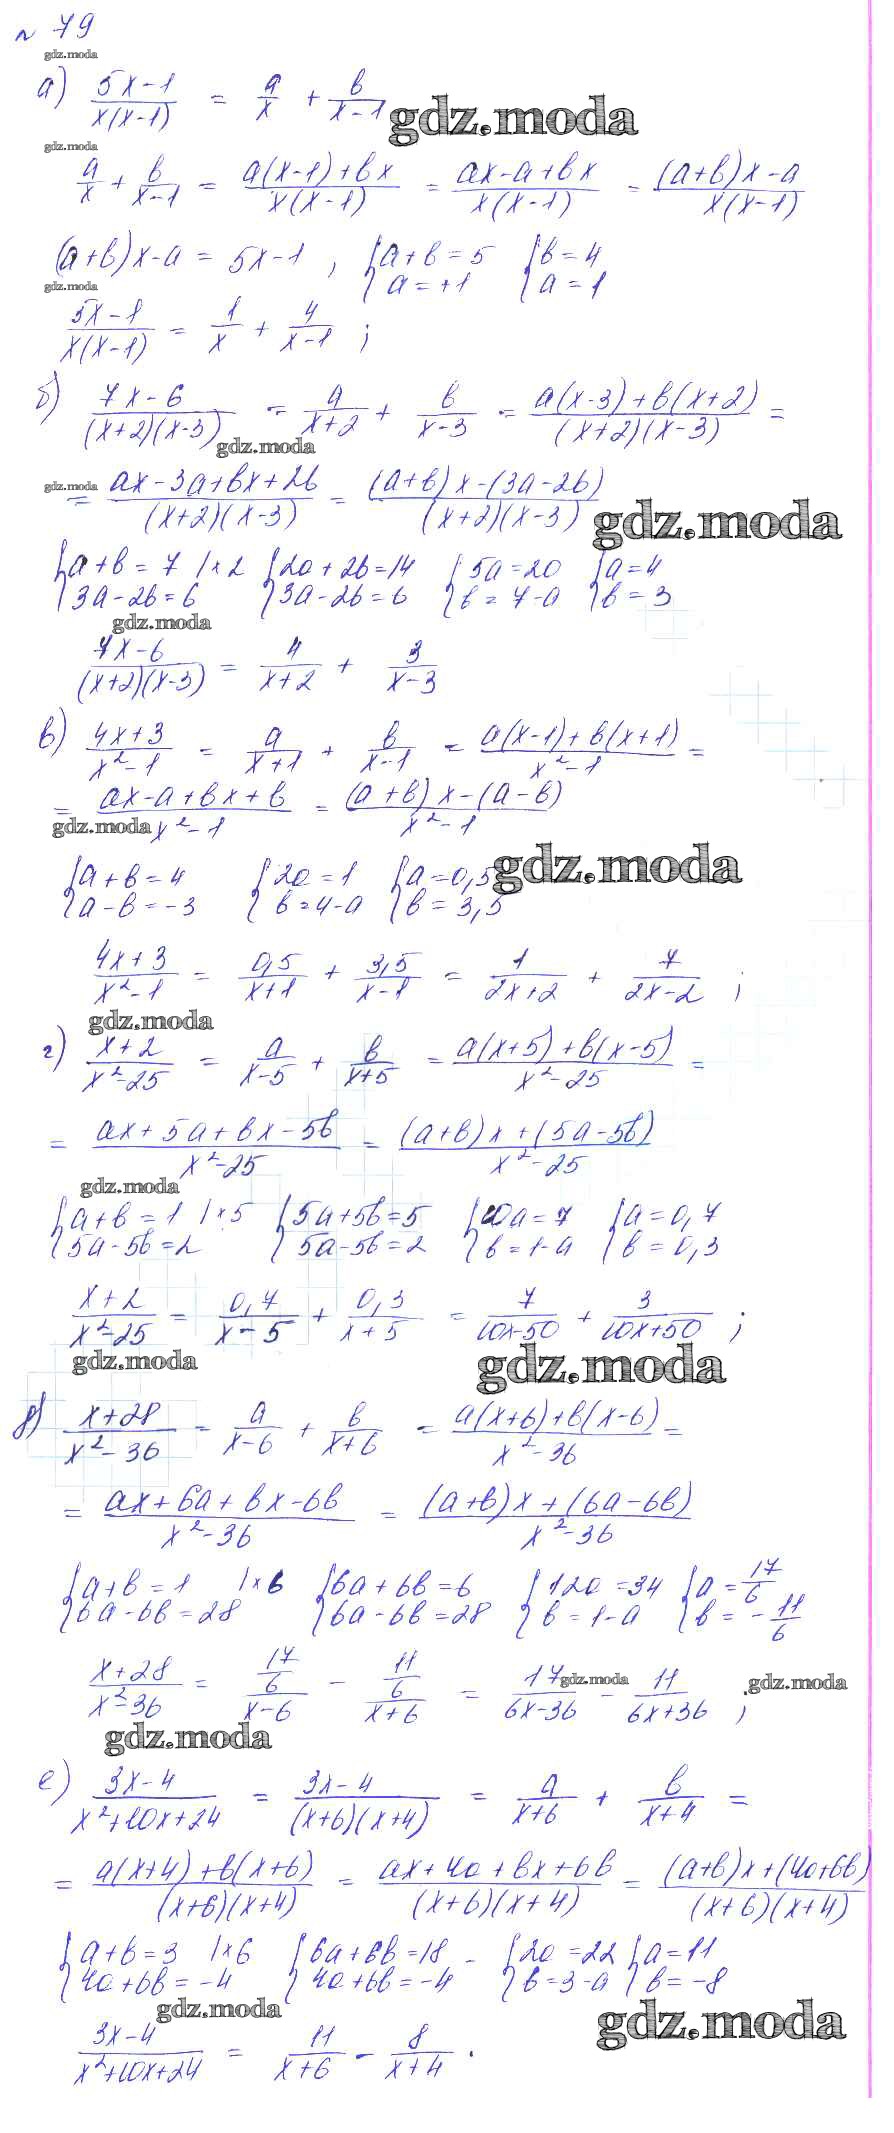 № 79
gdz.moda
а) (5x-1)/(x(x-1)) = a/x + b/(x-1)
gdz.moda
gdz.moda
a/x + b/(x-1) = (a(x-1)+bx)/(x(x-1)) = (ax-a+bx)/(x(x-1)) = ((a+b)x-a)/(x(x-1))
(a+b)x-a = 5x-1 , { a+b=5 { b=4
{ a=+1 { a=1
gdz.moda
(5x-1)/(x(x-1)) = 1/x + 4/(x-1) ;
б) (7x-6)/((x+2)(x-3)) = a/(x+2) + b/(x-3) = (a(x-3)+b(x+2))/((x+2)(x-3)) =
gdz.moda
gdz.moda
= (ax-3a+bx+2b)/((x+2)(x-3)) = ((a+b)x-(3a-2b))/((x+2)(x-3))
gdz.moda
{ a+b=7 |×2 { 2a+2b=14 { 5a=20 { a=4
{ 3a-2b=6 { 3a-2b=6 { b=7-a { b=3
gdz.moda
(7x-6)/((x+2)(x-3)) = 4/(x+2) + 3/(x-3)
в) (4x+3)/(x²-1) = a/(x+1) + b/(x-1) = (a(x-1)+b(x+1))/(x²-1) =
= (ax-a+bx+b)/(x²-1) = ((a+b)x-(a-b))/(x²-1)
gdz.moda
{ a+b=4 { 2a=1 { a=0,5
{ a-b=-3 { b=4-a { b=3,5
gdz.moda
(4x+3)/(x²-1) = 0,5/(x+1) + 3,5/(x-1) = 1/(2x+2) + 7/(2x-2) ;
gdz.moda
г) (x+2)/(x²-25) = a/(x-5) + b/(x+5) = (a(x+5)+b(x-5))/(x²-25) =
= (ax+5a+bx-5b)/(x²-25) = ((a+b)x+(5a-5b))/(x²-25)
gdz.moda
{ a+b=1 |×5 { 5a+5b=5 { 10a=7 { a=0,7
{ 5a-5b=2 { 5a-5b=2 { b=1-a { b=0,3
(x+2)/(x²-25) = 0,7/(x-5) + 0,3/(x+5) = 7/(10x-50) + 3/(10x+50) ;
gdz.moda
gdz.moda
д) (x+28)/(x²-36) = a/(x-6) + b/(x+6) = (a(x+6)+b(x-6))/(x²-36) =
= (ax+6a+bx-6b)/(x²-36) = ((a+b)x+(6a-6b))/(x²-36)
{ a+b=1 |×6 { 6a+6b=6 { 12a=34 { a=17/6
{ 6a-6b=28 { 6a-6b=28 { b=1-a { b=-11/6
(x+28)/(x²-36) = (17/6)/(x-6) - (11/6)/(x+6) = 17/(6x-36) - 11/(6x+36) ;
gdz.moda
gdz.moda
gdz.moda
е) (3x-4)/(x²+10x+24) = (3x-4)/((x+6)(x+4)) = a/(x+6) + b/(x+4) =
= (a(x+4)+b(x+6))/((x+6)(x+4)) = (ax+4a+bx+6b)/((x+6)(x+4)) = ((a+b)x+(4a+6b))/((x+6)(x+4))
{ a+b=3 |×6 { 6a+6b=18 - { 2a=22 { a=11
{ 4a+6b=-4 { 4a+6b=-4 { b=3-a { b=-8
gdz.moda
gdz.moda
(3x-4)/(x²+10x+24) = 11/(x+6) - 8/(x+4) .